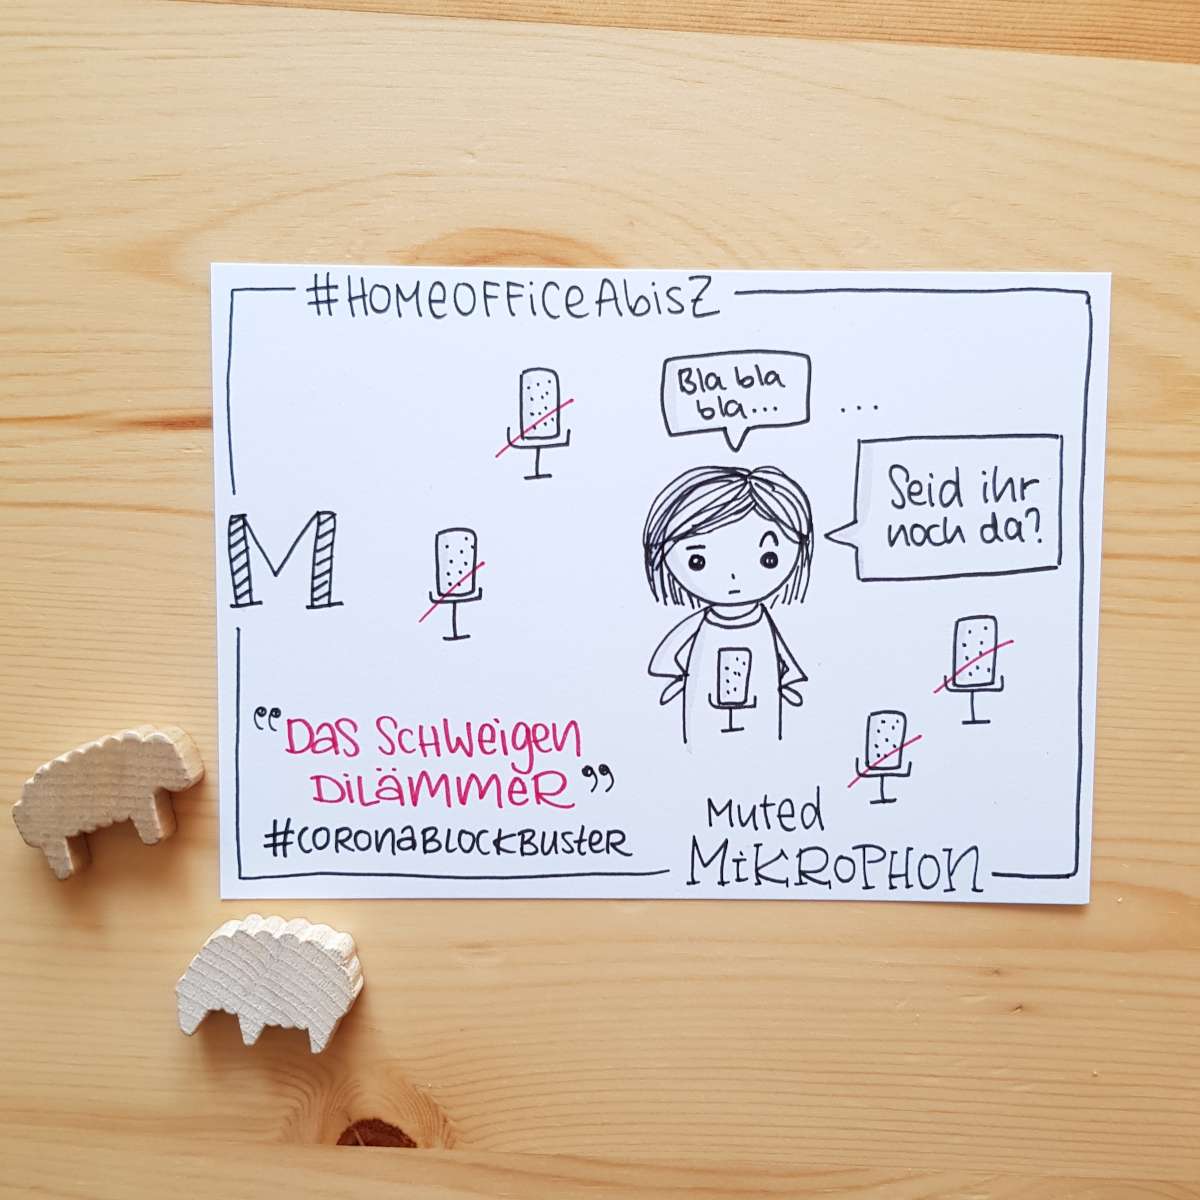 #HOMEOFFICEAbisZ
Bla bla
bla...
...
Seid ihr
noch da?
M
"Das Schweigen
DiLämmer"
#CORONABLOCKBUSTER
Muted
MiKROPHON